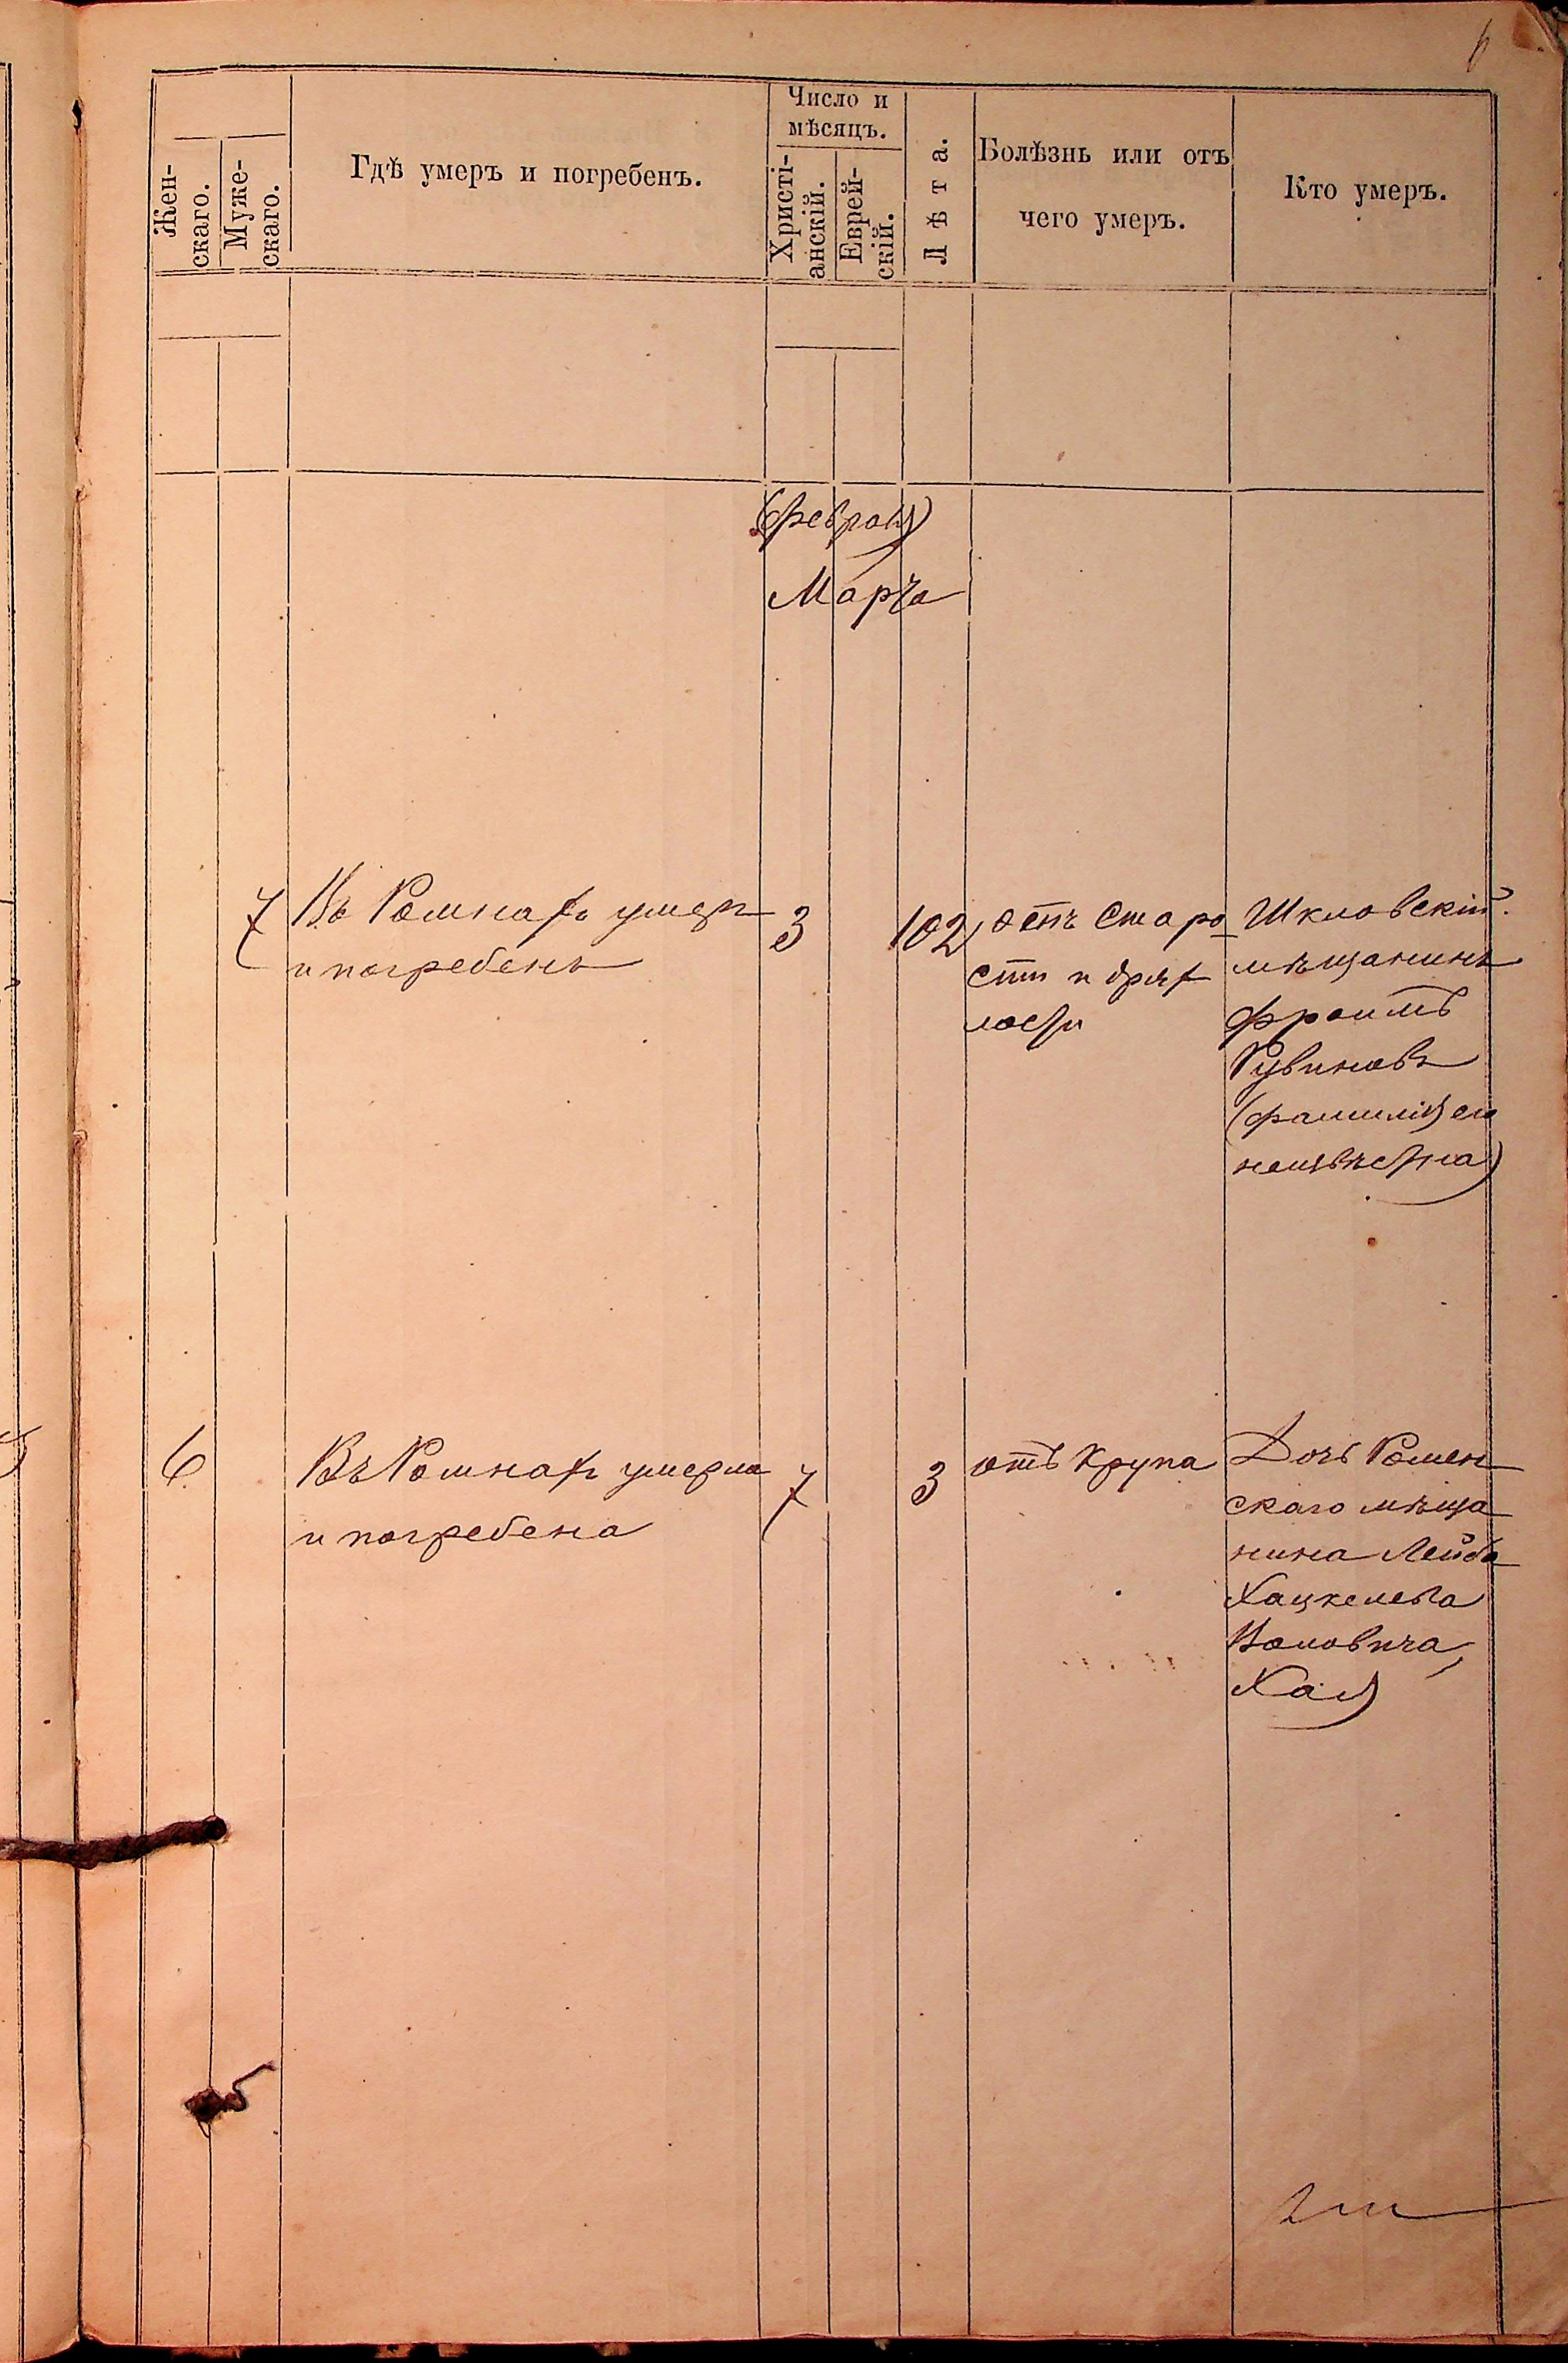 6
Жен-
скаго.
Муже-
скаго.
Гдѣ умеръ и погребенъ.
Число и
мѣсяцъ.
Христі-
анскій.
Еврей-
скій.
Лѣта.
Болѣзнь или отъ
чего умеръ.
Кто умеръ.
Февраля
Марта
7
Въ Ромнахъ умеръ
и погребенъ
3
102
отъ старо
сти и дрях
лости
Шкловскій
мѣщанинъ
Фроимъ
Рувиновъ
(фамилія его
неизвѣстна)
6
Въ Ромнахъ умерла
и погребена
7
3
отъ крупа
Дочь Ромен
скаго мѣща
нина Лейба
Хацкелева
Воловича,
Хая